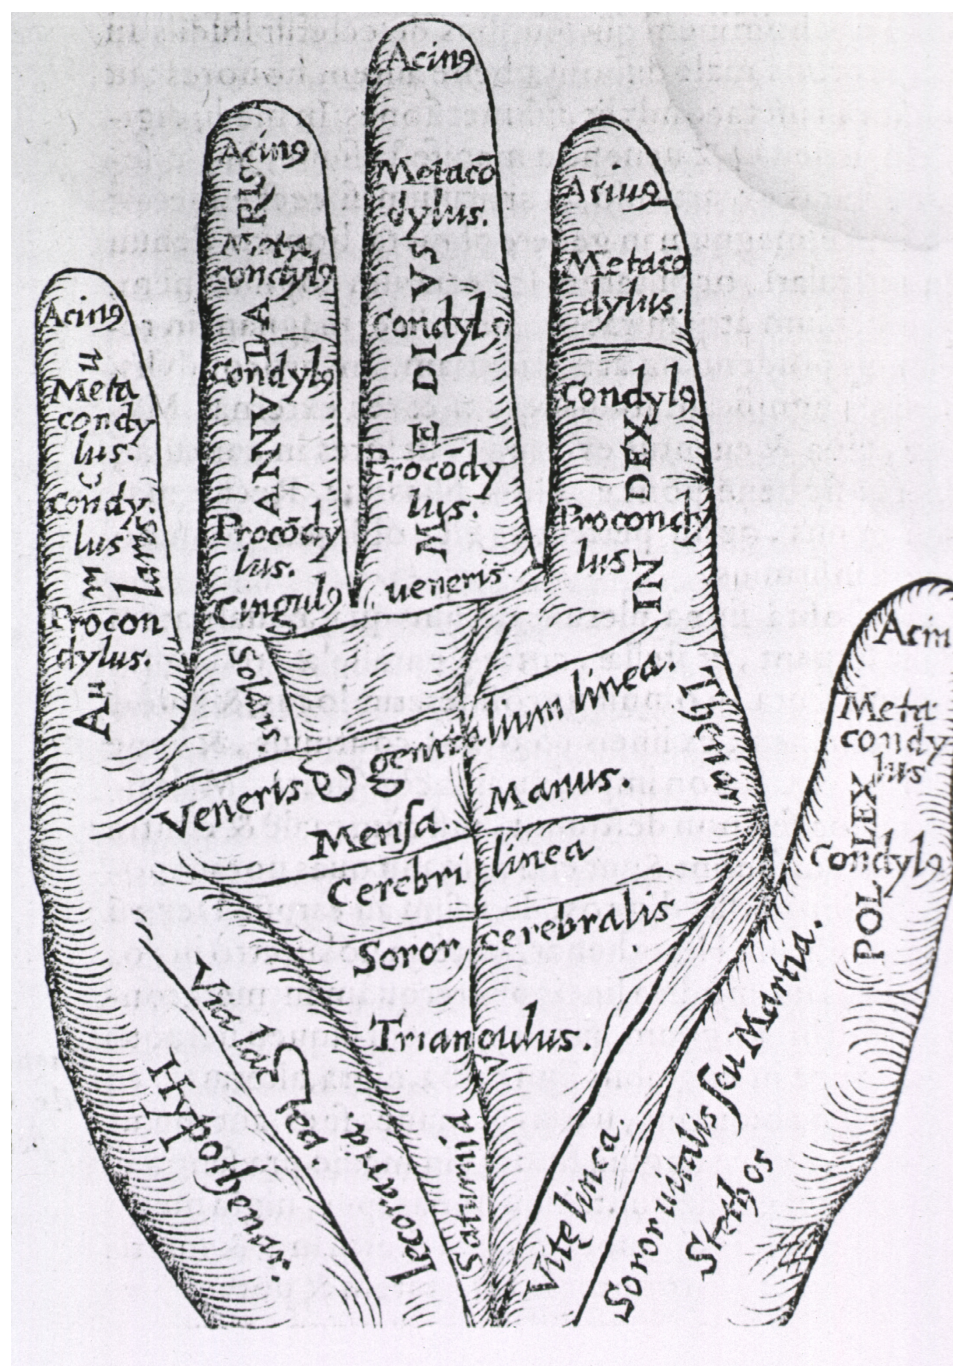 Acinꝰ
Meta
condy
lus.
Condy.
lus
Procon
dylus.
Auricu
laris
Acinꝰ
Meta
condylꝰ
Condylꝰ
Procōdy
lus.
ANNVLARIS
Acinꝰ
Metacō
dylus.
Condylꝰ
Procōdy
lus.
MEDIVS
Acinꝰ
Metacō
dylus.
Condylꝰ
Procondy
lus.
INDEX
Acin
Meta
condy
lus
Condylꝰ
POLLEX
Cingulꝰ veneris
Solaris
Veneris & genitalium linea.
Thenar
Mensa Manus.
Cerebri linea
Soror cerebralis
Triangulus.
Hypothenar.
Saturnin
Vitę linea
Soror vitalis seu Martia.
Stethos